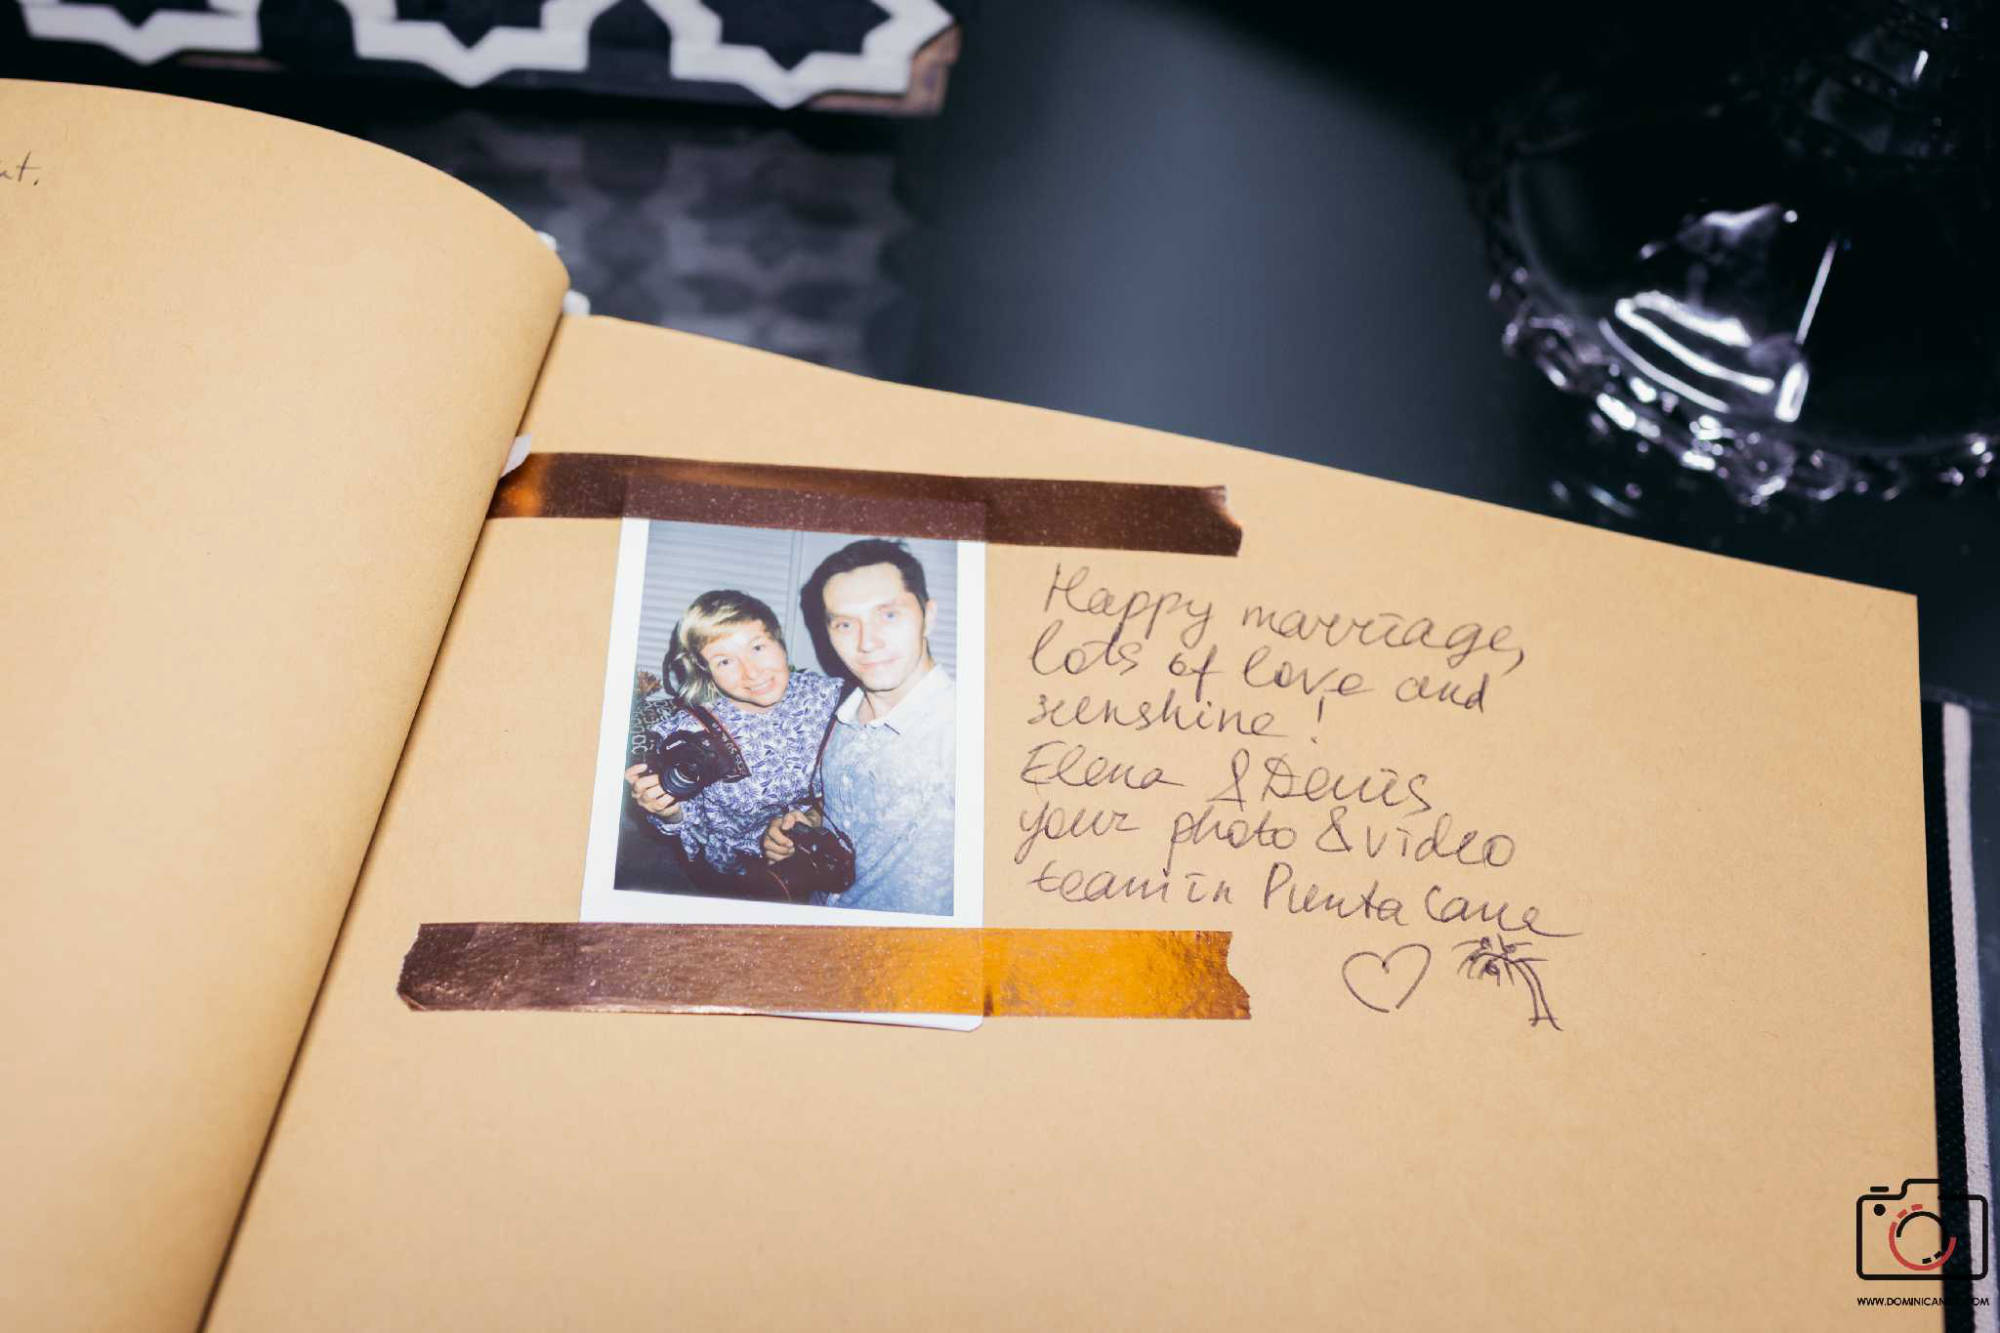 Happy marriage,
lots of love and
sunshine!
Elena & Denis
your photo & video
team in Punta Cana